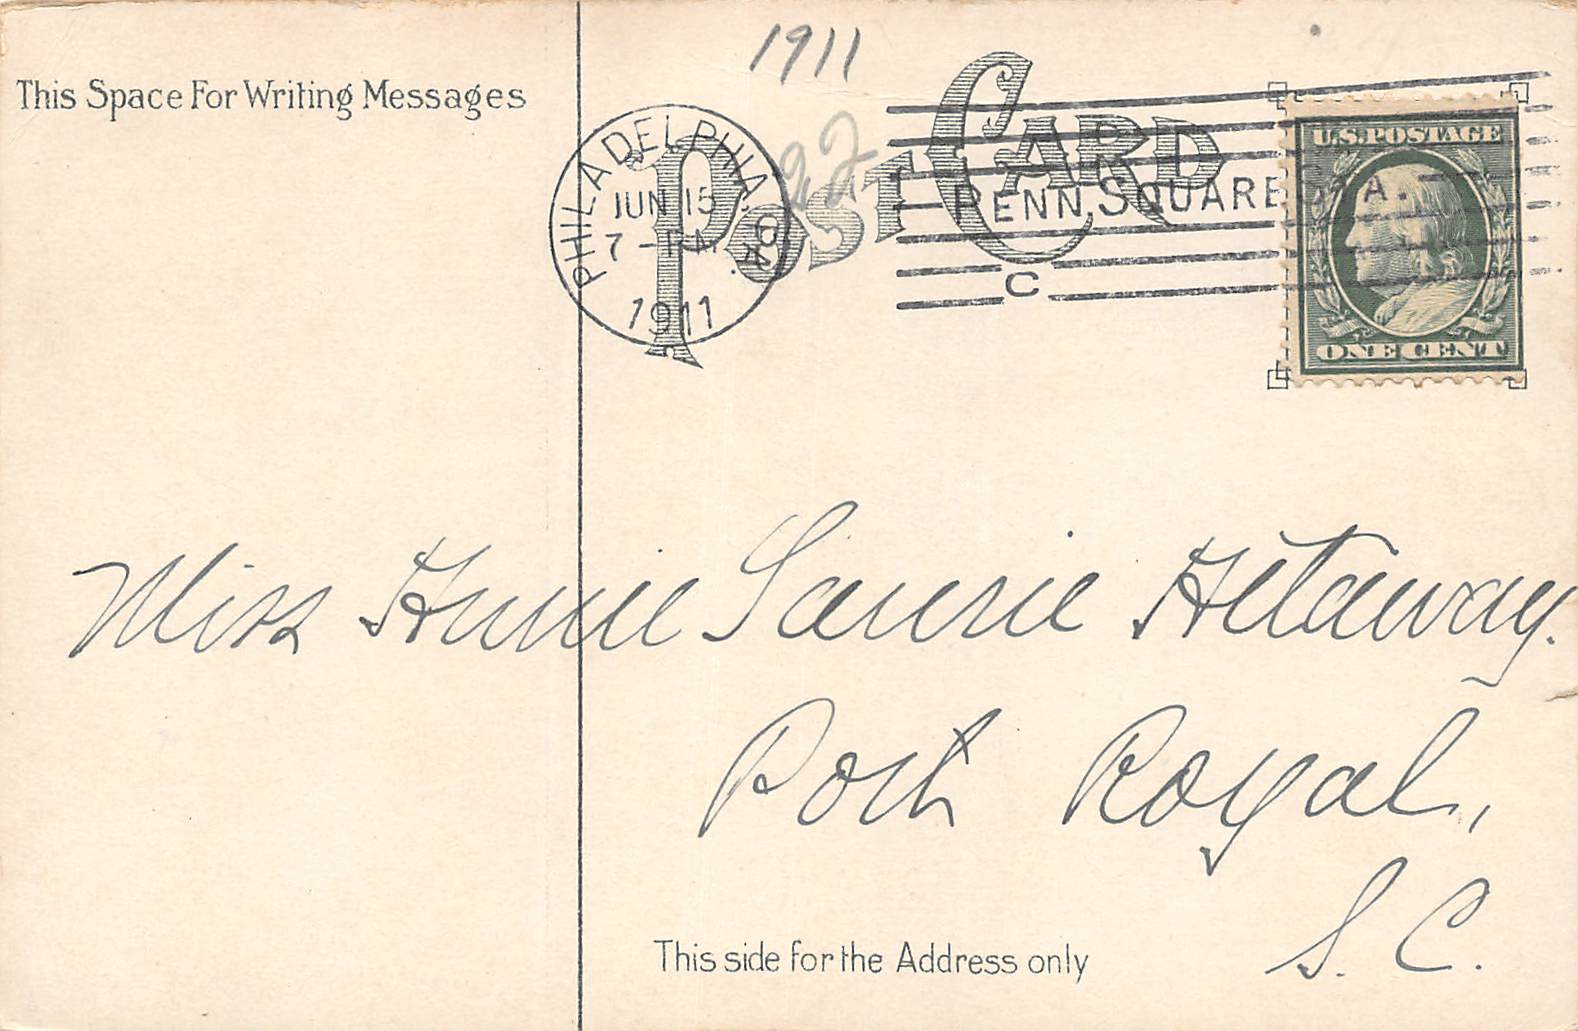 1911
This Space For Writing Messages
POST CARD
22
PHILADELPHIA, PA.
JUN 15
7 - PM
1911
PENN, SQUARE STA.
C
U.S. POSTAGE
ONE CENT
Miss
Port Royal,
S. C.
This side for the Address only